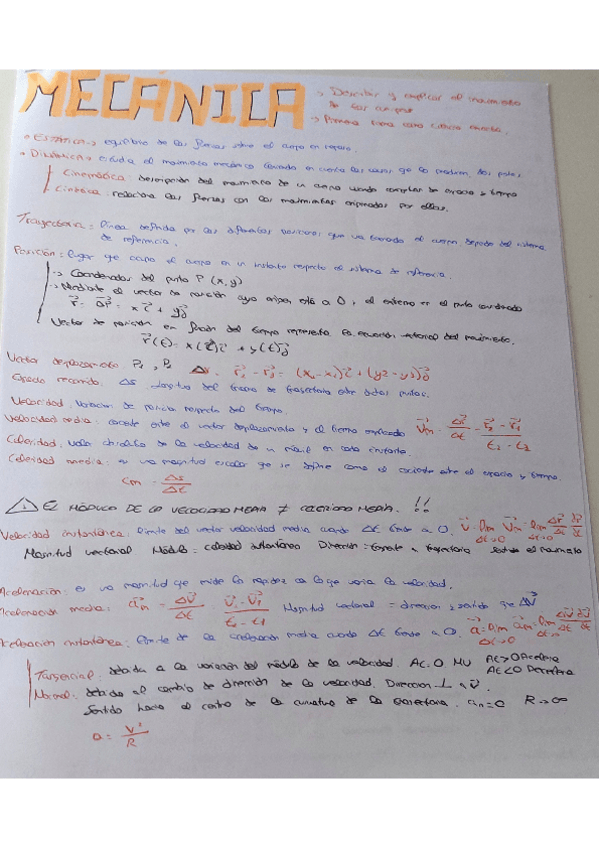 MECÁNICA
→ Describir y explicar el movimiento de los cuerpos
→ Primera rama como ciencia exacta.
• Estática → equilibrio de las fuerzas sobre el cuerpo en reposo.
• Dinámica → estudia el movimiento mecánico teniendo en cuenta las causas que lo producen. Dos partes
Cinemática: descripción del movimiento de un cuerpo usando conceptos de espacio y tiempo
Cinética: relaciona las fuerzas con los movimientos originados por ellas.
Trayectoria: línea definida por las diferentes posiciones que va tomando el cuerpo, depende del sistema
de referencia.
Posición: lugar que ocupa el cuerpo en un instante respecto el sistema de referencia.
→ Coordenadas del punto P (x, y)
→ Mediante el vector de posición cuyo origen está a O, el extremo en el punto coordinado
r⃗ = OP⃗ = x i⃗ + y j⃗
Vector de posición en función del tiempo representa la ecuación vectorial del movimiento.
r⃗(t) = x(t) i⃗ + y(t) j⃗
Vector desplazamiento P₁, P₂ Δ r⃗₂ - r⃗₁ = (x₂ - x₁) i⃗ + (y2 - y1) j⃗
Espacio recorrido. ΔS, longitud del tramo de trayectoria entre dichos puntos.
Velocidad, variación de posición respecto del tiempo.
Velocidad media: cociente entre el vector desplazamiento y el tiempo empleado V⃗m = Δr⃗/Δt = r⃗₂ - r⃗₁ / t₂ - t₁
Celeridad, valor absoluto de la velocidad de un móvil en cada instante.
Celeridad media: es una magnitud escalar que se define como el cociente entre el espacio y tiempo.
cm = Δs/Δt
⚠ EL MÓDULO DE LA VELOCIDAD MEDIA ≠ CELERIDAD MEDIA. !!
Velocidad instantánea: límite del vector velocidad media cuando Δt tiende a 0. v⃗ = lim Δt→0 V⃗m = lim Δt→0 Δr⃗/Δt dr⃗/dt
Magnitud vectorial Módulo: celeridad instantánea Dirección: tangente a trayectoria Sentido el movimiento
Aceleración: es una magnitud que mide la rapidez con la que varía la velocidad.
Aceleración media: a⃗m = ΔV⃗/Δt = V⃗₂ - V⃗₁ / t₂ - t₁ Magnitud vectorial = dirección y sentido que ΔV⃗
Aceleración instantánea: límite de la aceleración media cuando Δt tiende a 0. a⃗ = lim Δt→0 a⃗m = lim Δt→0 ΔV⃗/Δt dv⃗/dt
Tangencial: debida a la variación del módulo de la velocidad. At = 0 MU At > 0 Acelera
At < 0 Decelera
Normal: debido al cambio de dirección de la velocidad. Dirección ⊥ a v⃗.
Sentido hacia el centro de la curvatura de la trayectoria. an = 0 R → ∞
a = V²/R